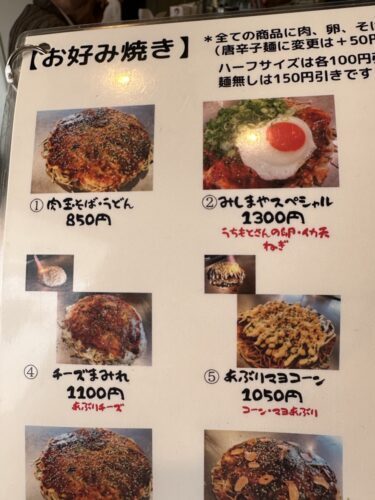 【お好み焼き】
＊全ての商品に肉、卵、そ
（唐辛子麺に変更は＋50円
ハーフサイズは各100円
麺無しは150円引きです
①肉玉そば・うどん
850円
②みしまやスペシャル
1300円
うちもとさんの卵・イカ天
ねぎ
④チーズまみれ
1100円
あぶりチーズ
⑤あぶりマヨコーン
1050円
コーン・マヨあぶり